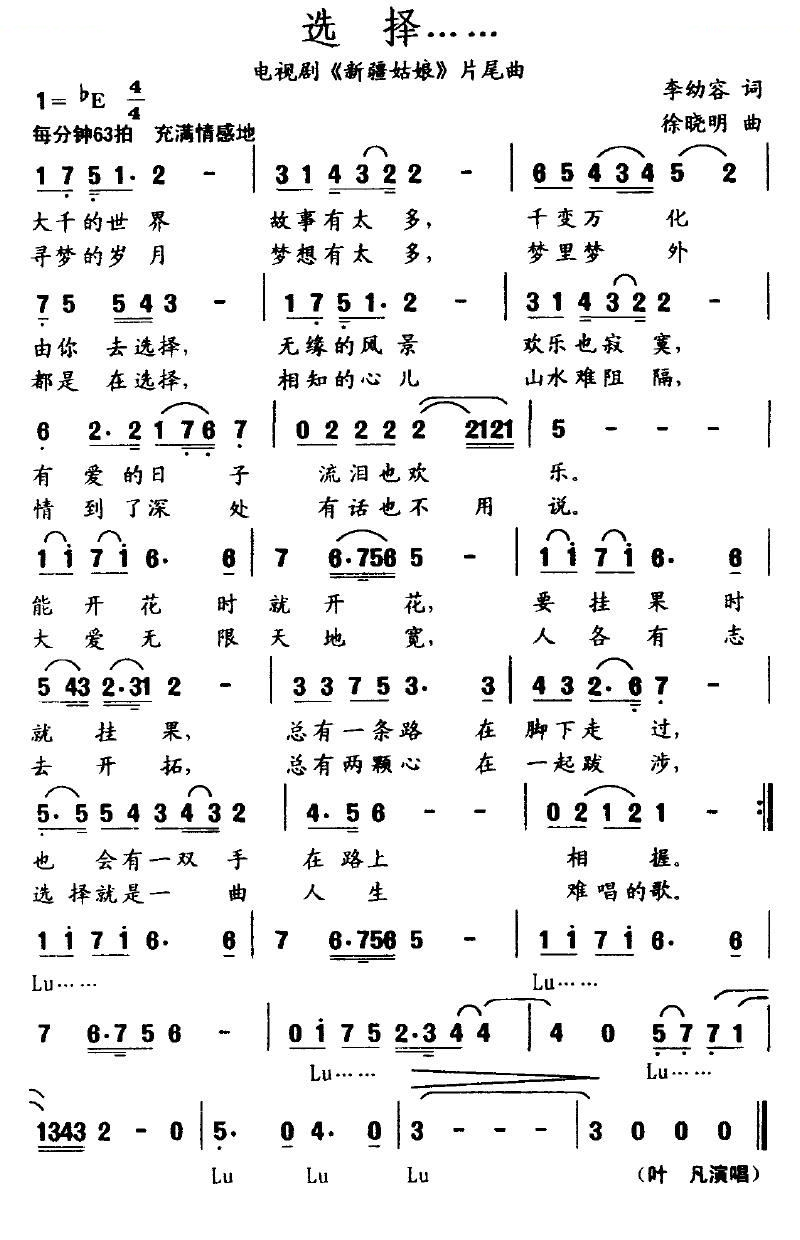 选 择……
电视剧《新疆姑娘》片尾曲
1=♭E 4/4
李幼容 词
每分钟63拍 充满情感地
徐晓明 曲
1 7 5 1· 2 - | 3 1 4 3 2 2 2 - | 6 5 4 3 3 4 5 2 |
大千的世 界 故事有太 多, 千变万 化
寻梦的岁 月 梦想有太 多, 梦里梦 外
7 5 5 4 3 - | 1 7 5 1· 2 - | 3 1 4 3 2 2 2 - |
由你 去选择, 无缘的风 景 欢乐也寂 寞,
都是 在选择, 相知的心 儿 山水难阻 隔,
6 2· 2 1 7 6 7 | 0 2 2 2 2 2 2121 | 5 - - - |
有 爱 的日 子 流泪也欢 乐。
情 到 了深 处 有话也不 用 说。
1 i 7 i 6· 6 | 7 6·756 5 - | 1 i 7 i 6· 6 |
能 开 花 时 就 开 花, 要 挂 果 时
大 爱 无 限 天 地 宽, 人 各 有 志
5 43 2·31 2 - | 3 3 7 5 3· 3 | 4 3 2· 6 7 - |
就 挂 果, 总有一条路 在 脚下走 过,
去 开 拓, 总有两颗心 在 一起跋 涉,
5· 5 5 4 3 4 3 2 | 4· 5 6 - - | 0 2 1 2 1 - :|
也 会有一双 手 在 路上 相 握。
选 择就是一 曲 人 生 难唱的歌。
1 i 7 i 6· 6 | 7 6·756 5 - | 1 i 7 i 6· 6 |
Lu…… Lu……
7 6·7 5 6 - | 0 i 7 5 2·3 4 4 | 4 0 5 7 7 1 |
Lu…… Lu……
1343 2 - 0 | 5· 0 4· 0 | 3 - - - | 3 0 0 0 ‖
Lu Lu Lu (叶 凡演唱)